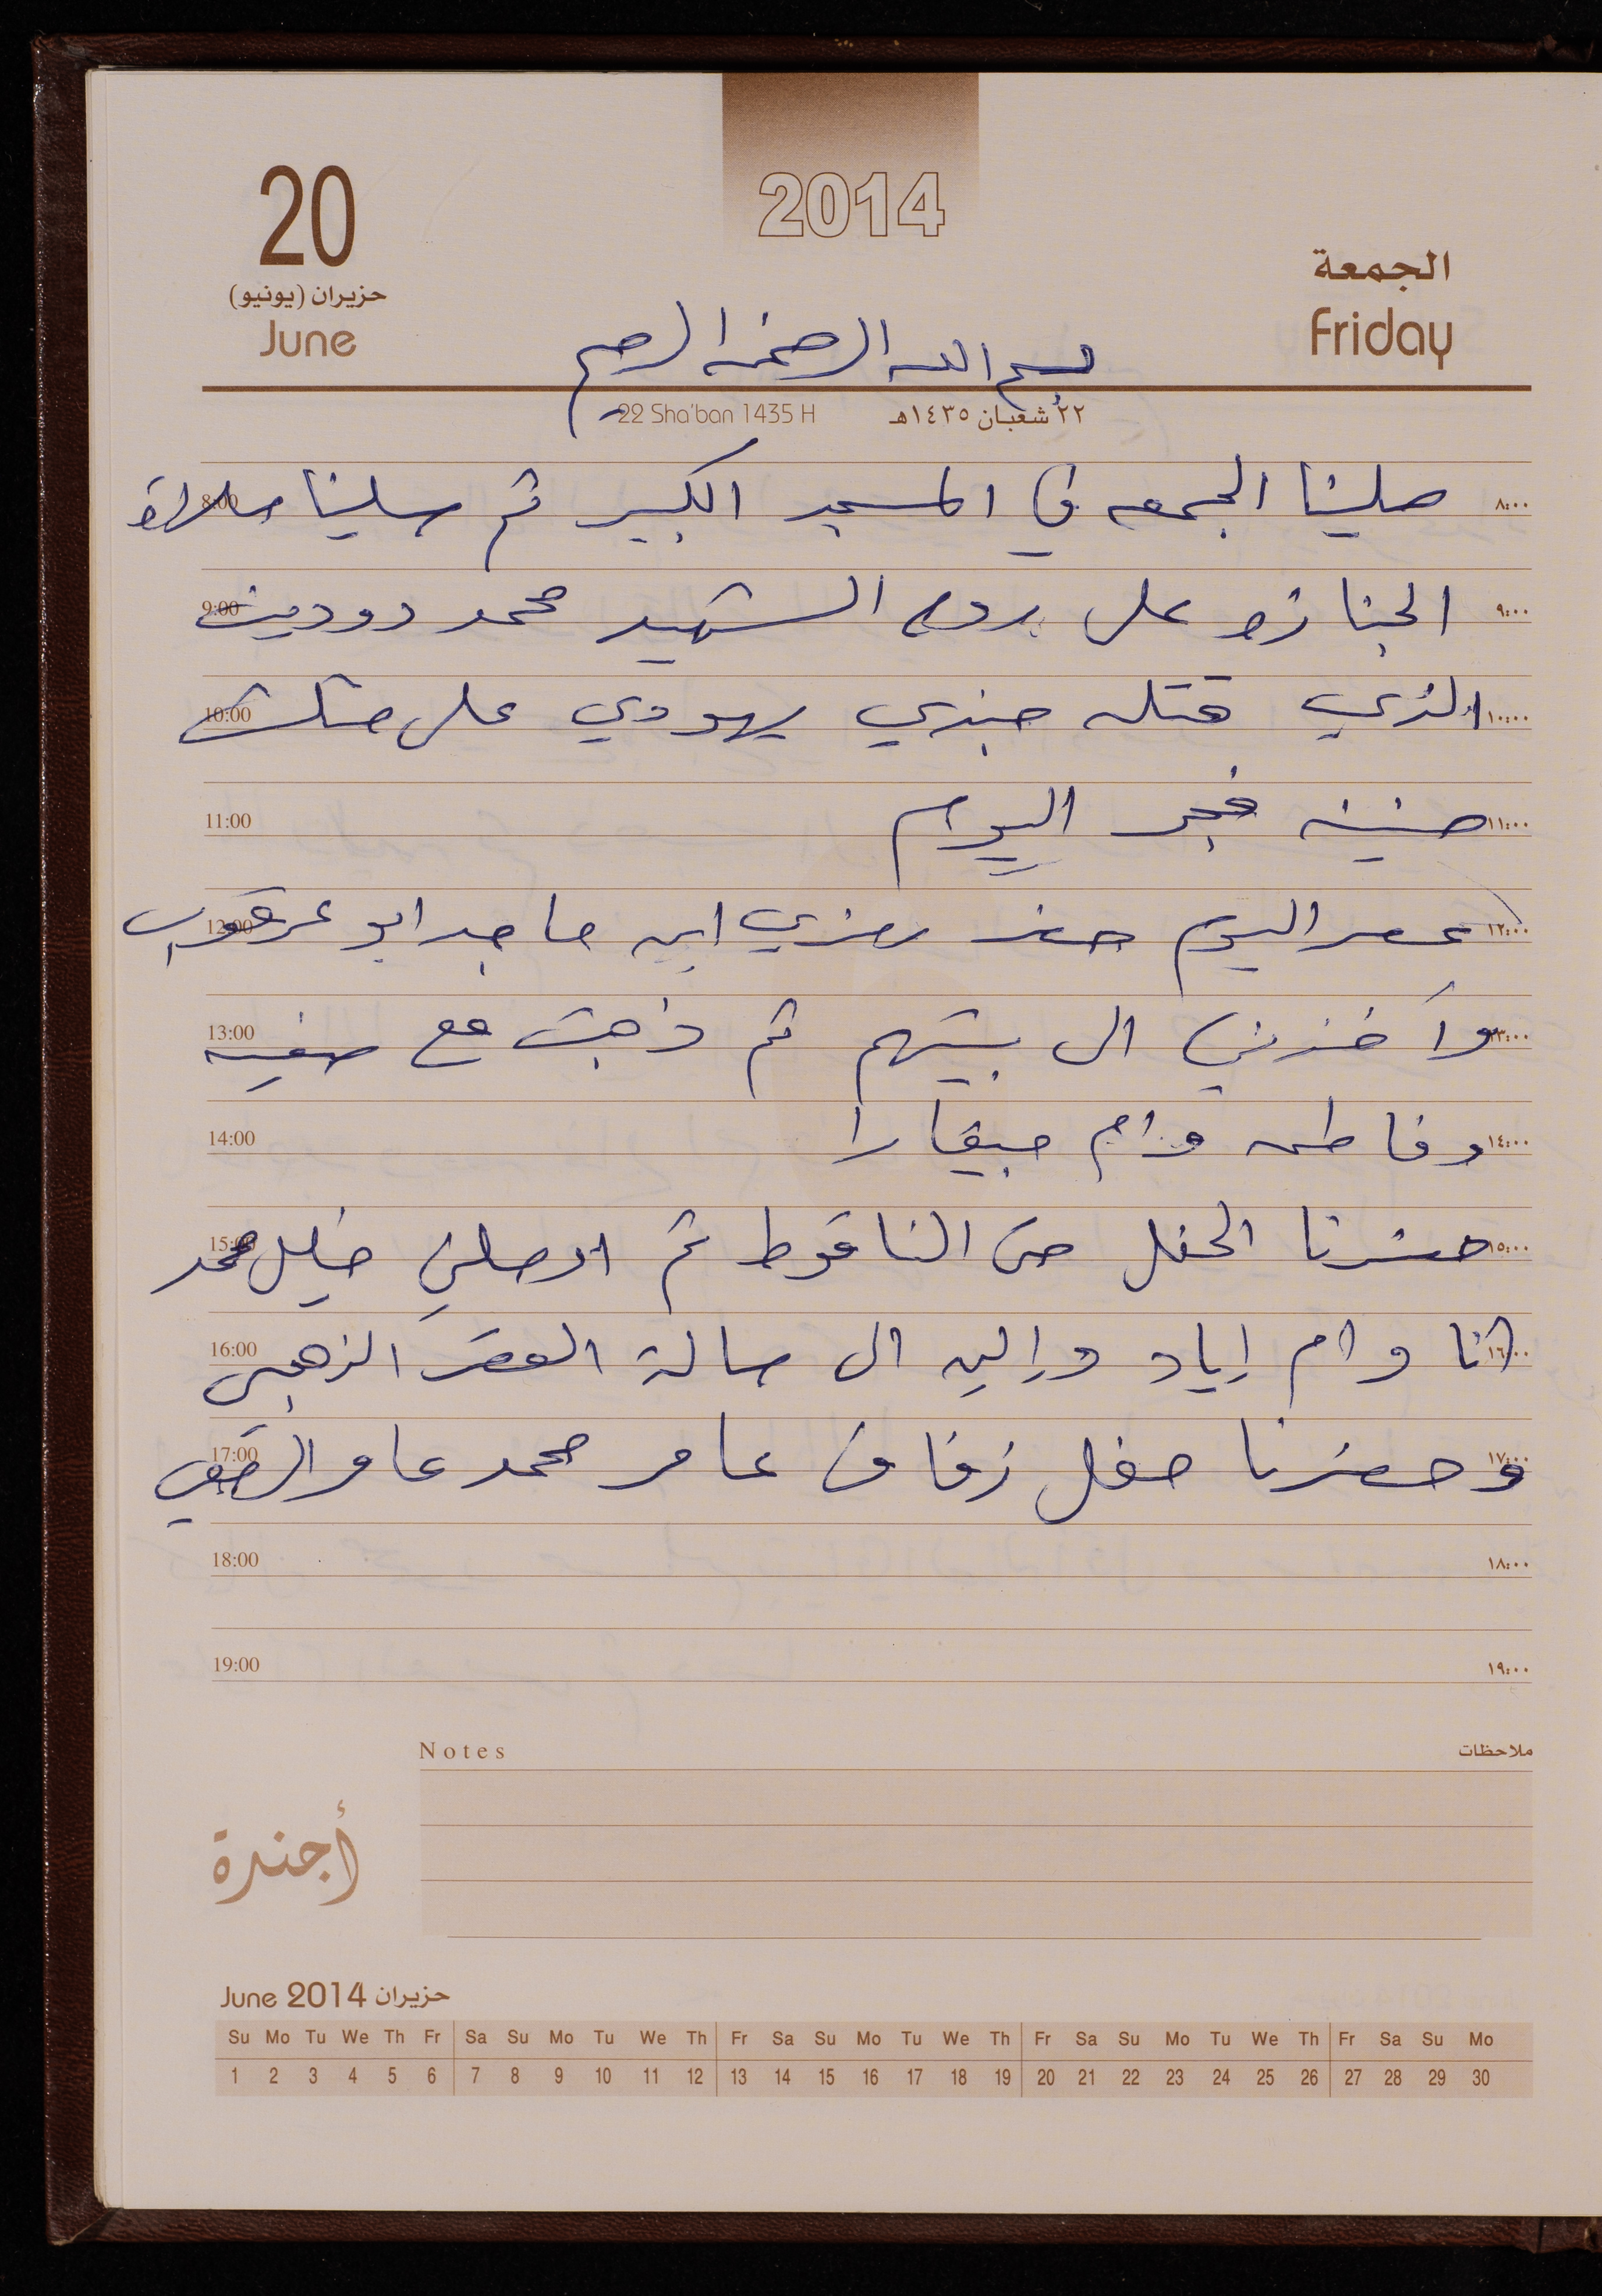 2014
20
حزيران (يونيو)
June
الجمعة
Friday
بسم الله الرحمن الرحيم
22 Sha'ban 1435 H ٢٢ شعبان ١٤٣٥هـ
8:00 صلينا الجمعه في المسجد الكبير ثم صلينا صلاة ٨:٠٠
9:00 الجنازه على روح الشهيد محمد دودين ٩:٠٠
10:00 الذي قتله جندي يهودي على ١٠:٠٠
11:00 فجر اليوم ١١:٠٠
12:00 عصر اليوم حضر رمزي ابن ماجد ابو عرقوب ١٢:٠٠
13:00 وأخذني الى بيتهم ثم ذهبت مع صفيه ١٣:٠٠
14:00 وفاطمه وام جيفارا ١٤:٠٠
15:00 حضرنا الحفل حتى الناقوط ثم اوصلني خليل محمد ١٥:٠٠
16:00 انا وام إياد وإلين الى صالة القصر الذهبي ١٦:٠٠
17:00 وحضرنا حفل زفاف عامر محمد عامر ١٧:٠٠
18:00 ١٨:٠٠
19:00 ١٩:٠٠
Notes ملاحظات
أجندة
June 2014 حزيران
Su Mo Tu We Th Fr Sa Su Mo Tu We Th Fr Sa Su Mo Tu We Th Fr Sa Su Mo Tu We Th Fr Sa Su Mo
1 2 3 4 5 6 7 8 9 10 11 12 13 14 15 16 17 18 19 20 21 22 23 24 25 26 27 28 29 30